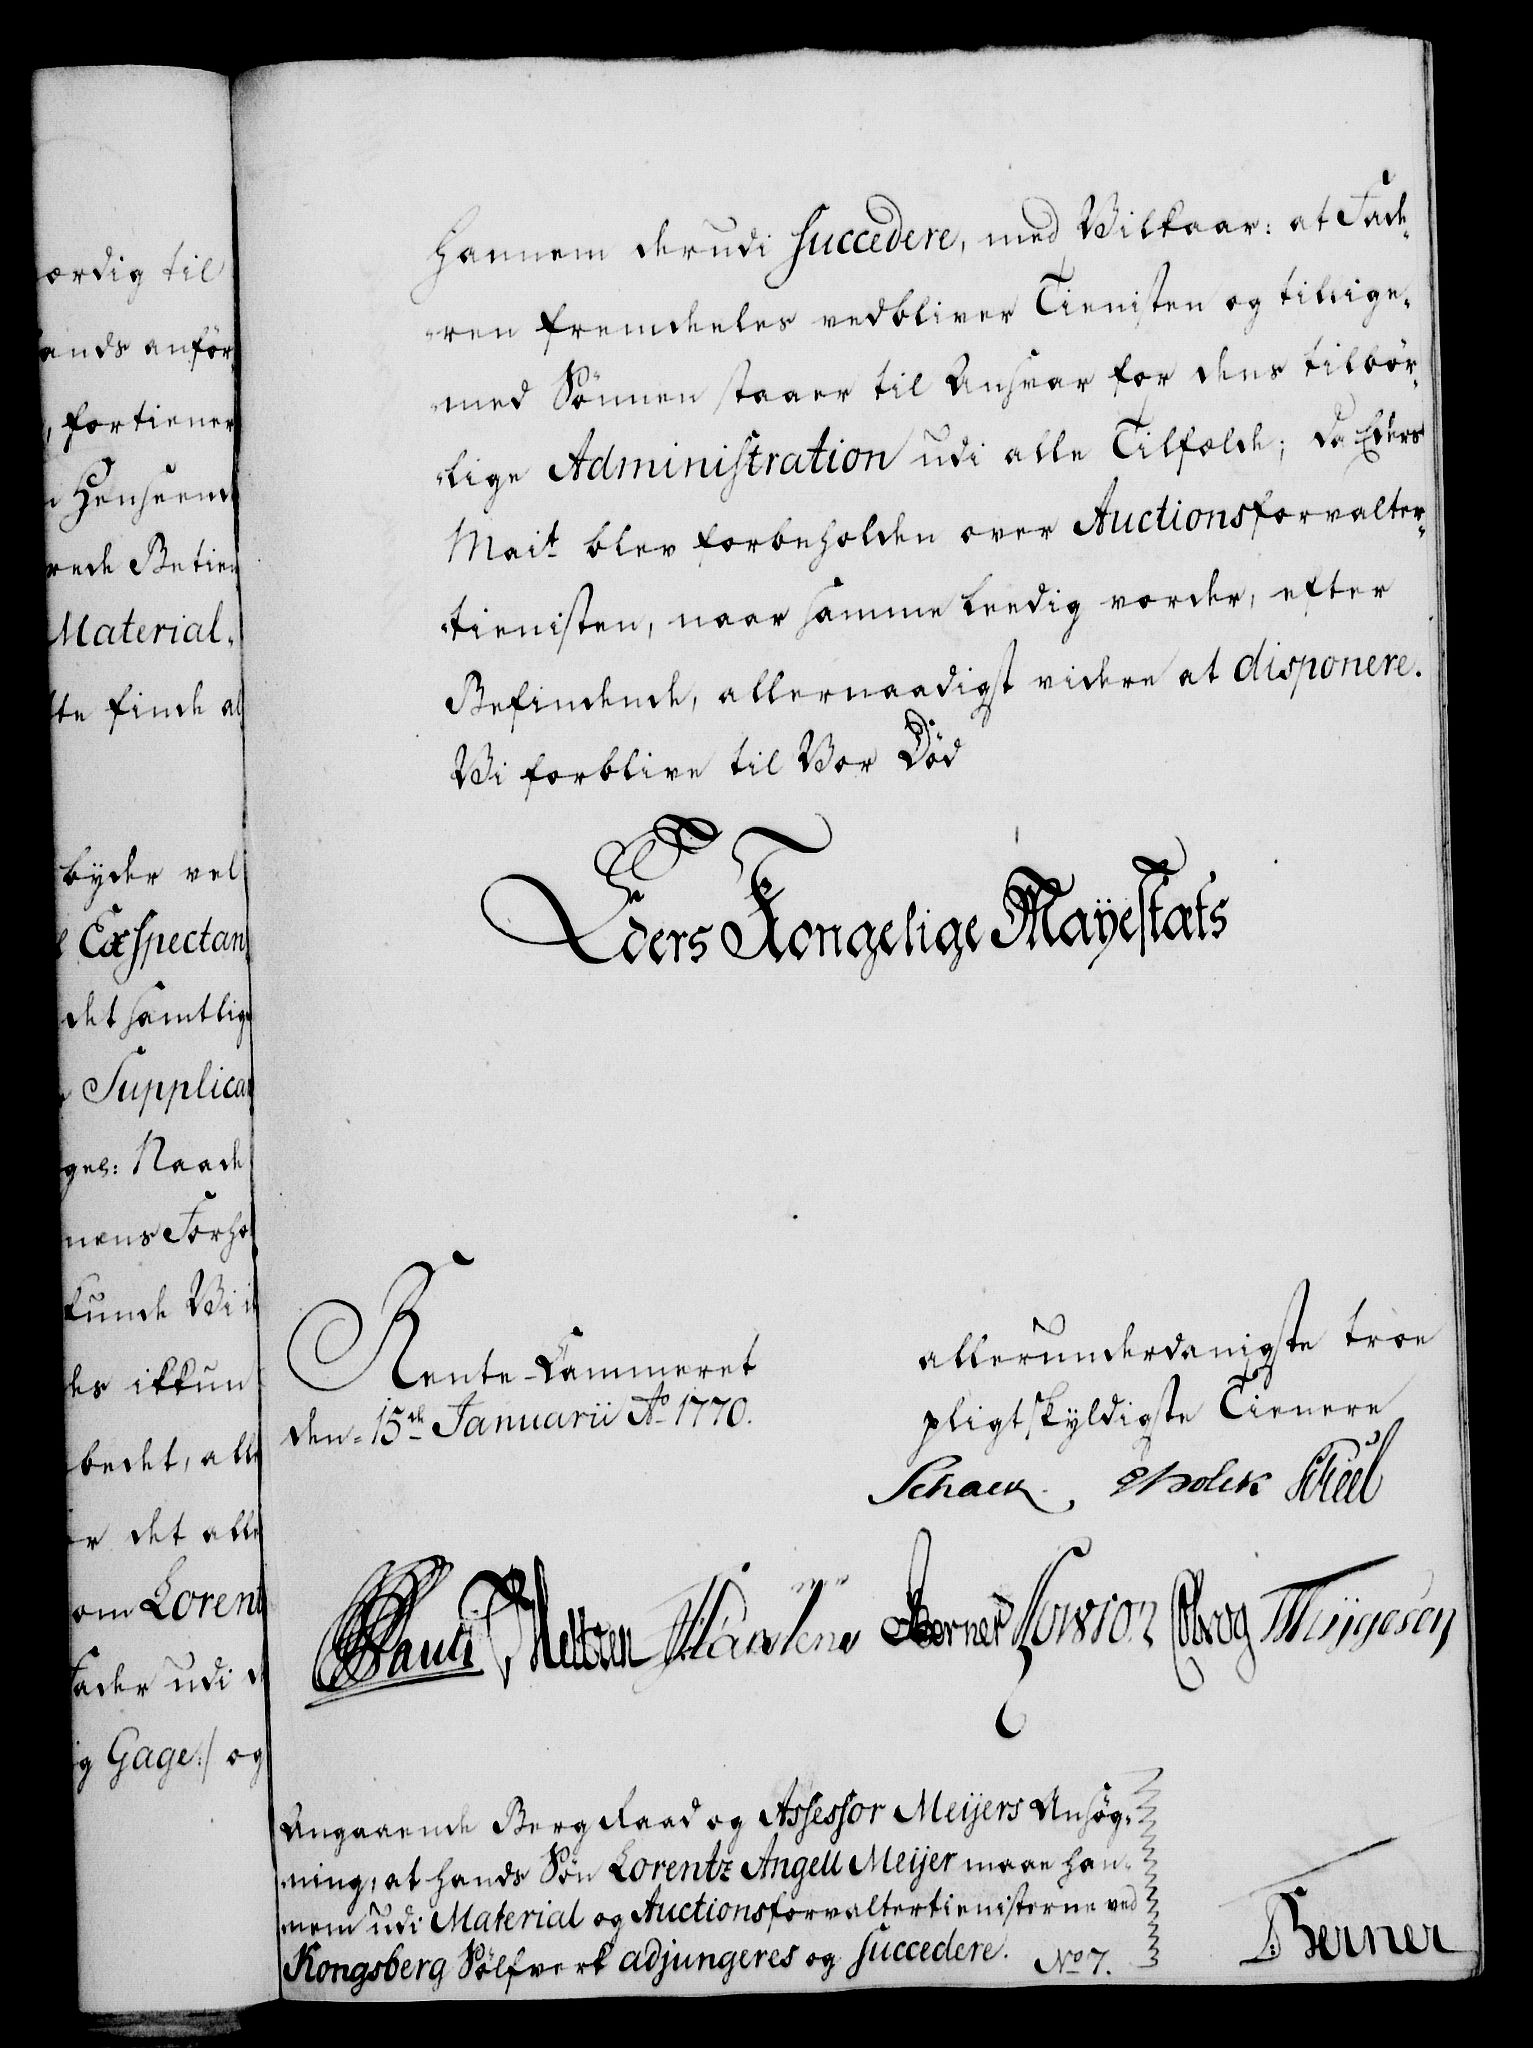 ordig til
ands anför,
, fortiener
Henseend
rede Betien
Material,
te finde al
byder vel
Exspectan
det samtlig
Supplica
gel: Naade
nens Forho
kunde Vi i
des ikkun
bedet, alle
r det alle
om Lorent
Fader udi d
g Gage:/ og
Hannem derudi succedere, med Vilkaar: at Fade,
ren fremdeeles vedbliver Tienisten og tillige,
med Sönnen staaer til Ansvar for dens tilbör,
lige Administration udi alle Tilfælde; da Eders
Mait blev forbeholden over Auctionsforvalter,
tienisten, naar samme leedig vorder, efter
Befindende, allernaadigst videre at disponere.
Vi forblive til Vor Död
Eders Kongelige Mayestæts
Rente-Cammeret
den 15de Januarii Ao 1770.
allerunderdanigste troe
pligtskyldigste Tienere
Schack. Holck Scheel
Pauli Meltzen Berner Müngesen
Angaaende Berg Raad og Assessor Meijers Ansøg,
ning, at hands Sön Lorentz Angell Meijer maae han,
nem udi Material og Auctionsforvaltertienisterne ved
Kongsberg Sölfverk adjungeres og succedere. No 7.
Berner